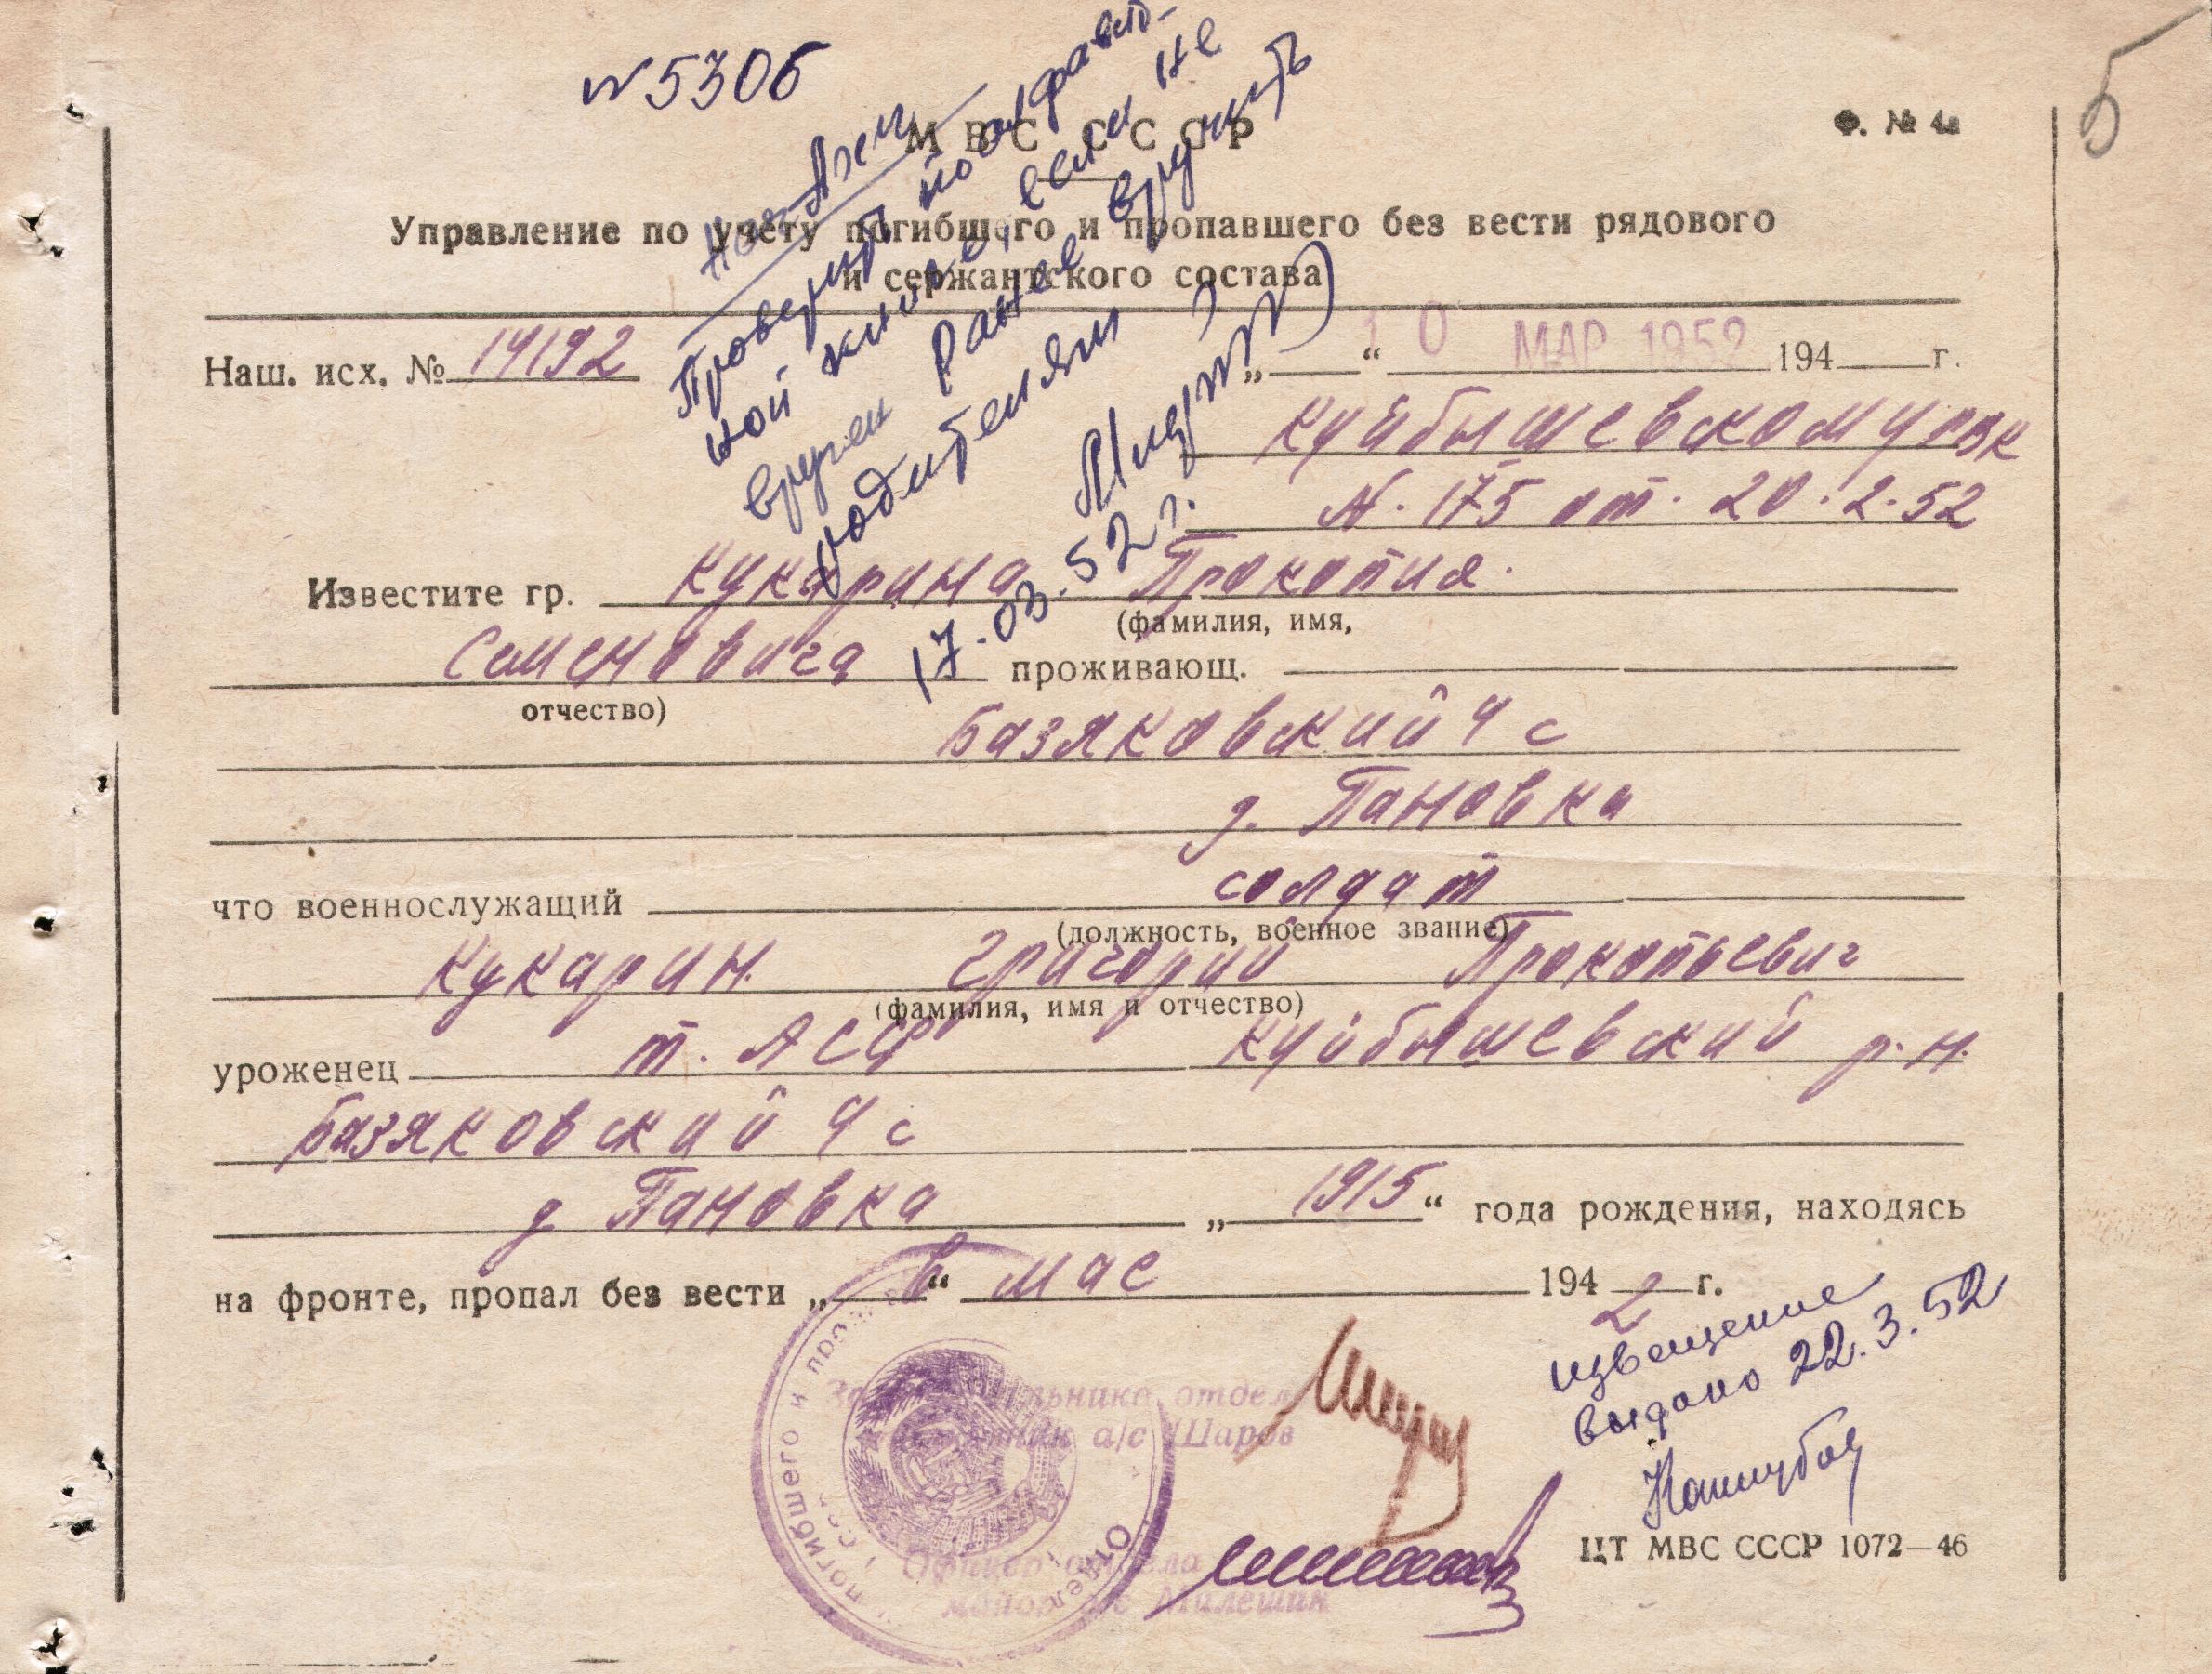 № 5306
5
М В С С С С Р
Ф. № 4а
Управление по учету погибшего и пропавшего без вести рядового
и сержантского состава
Проверить по алфавит-
ной книге, если не
вручен ранее вручить
родителям
17.03.52 г.
Наш. исх. № 14192
10 МАР 1952
„ “ 194 г.
Куйбышевскому РВК
N. 175 от. 20.2.52
Известите гр. Кукарина Прокопия
(фамилия, имя,
Семеновича проживающ.
отчество)
Базяковский ч с
д. Пановка
что военнослужащий солдат
(должность, военное звание)
Кукарин Григорий Прокопьевич
(фамилия, имя и отчество)
уроженец Т. АССР Куйбышевский р-н.
Базяковский ч с
д Пановка „ 1915 “ года рождения, находясь
на фронте, пропал без вести „ в “ мае 194 2 г.
извещение
выдано 22.3.52
Зам. начальника отдела
а/с Шаров
Офицер отдела
майор а/с Милешин
ЦТ МВС СССР 1072—46